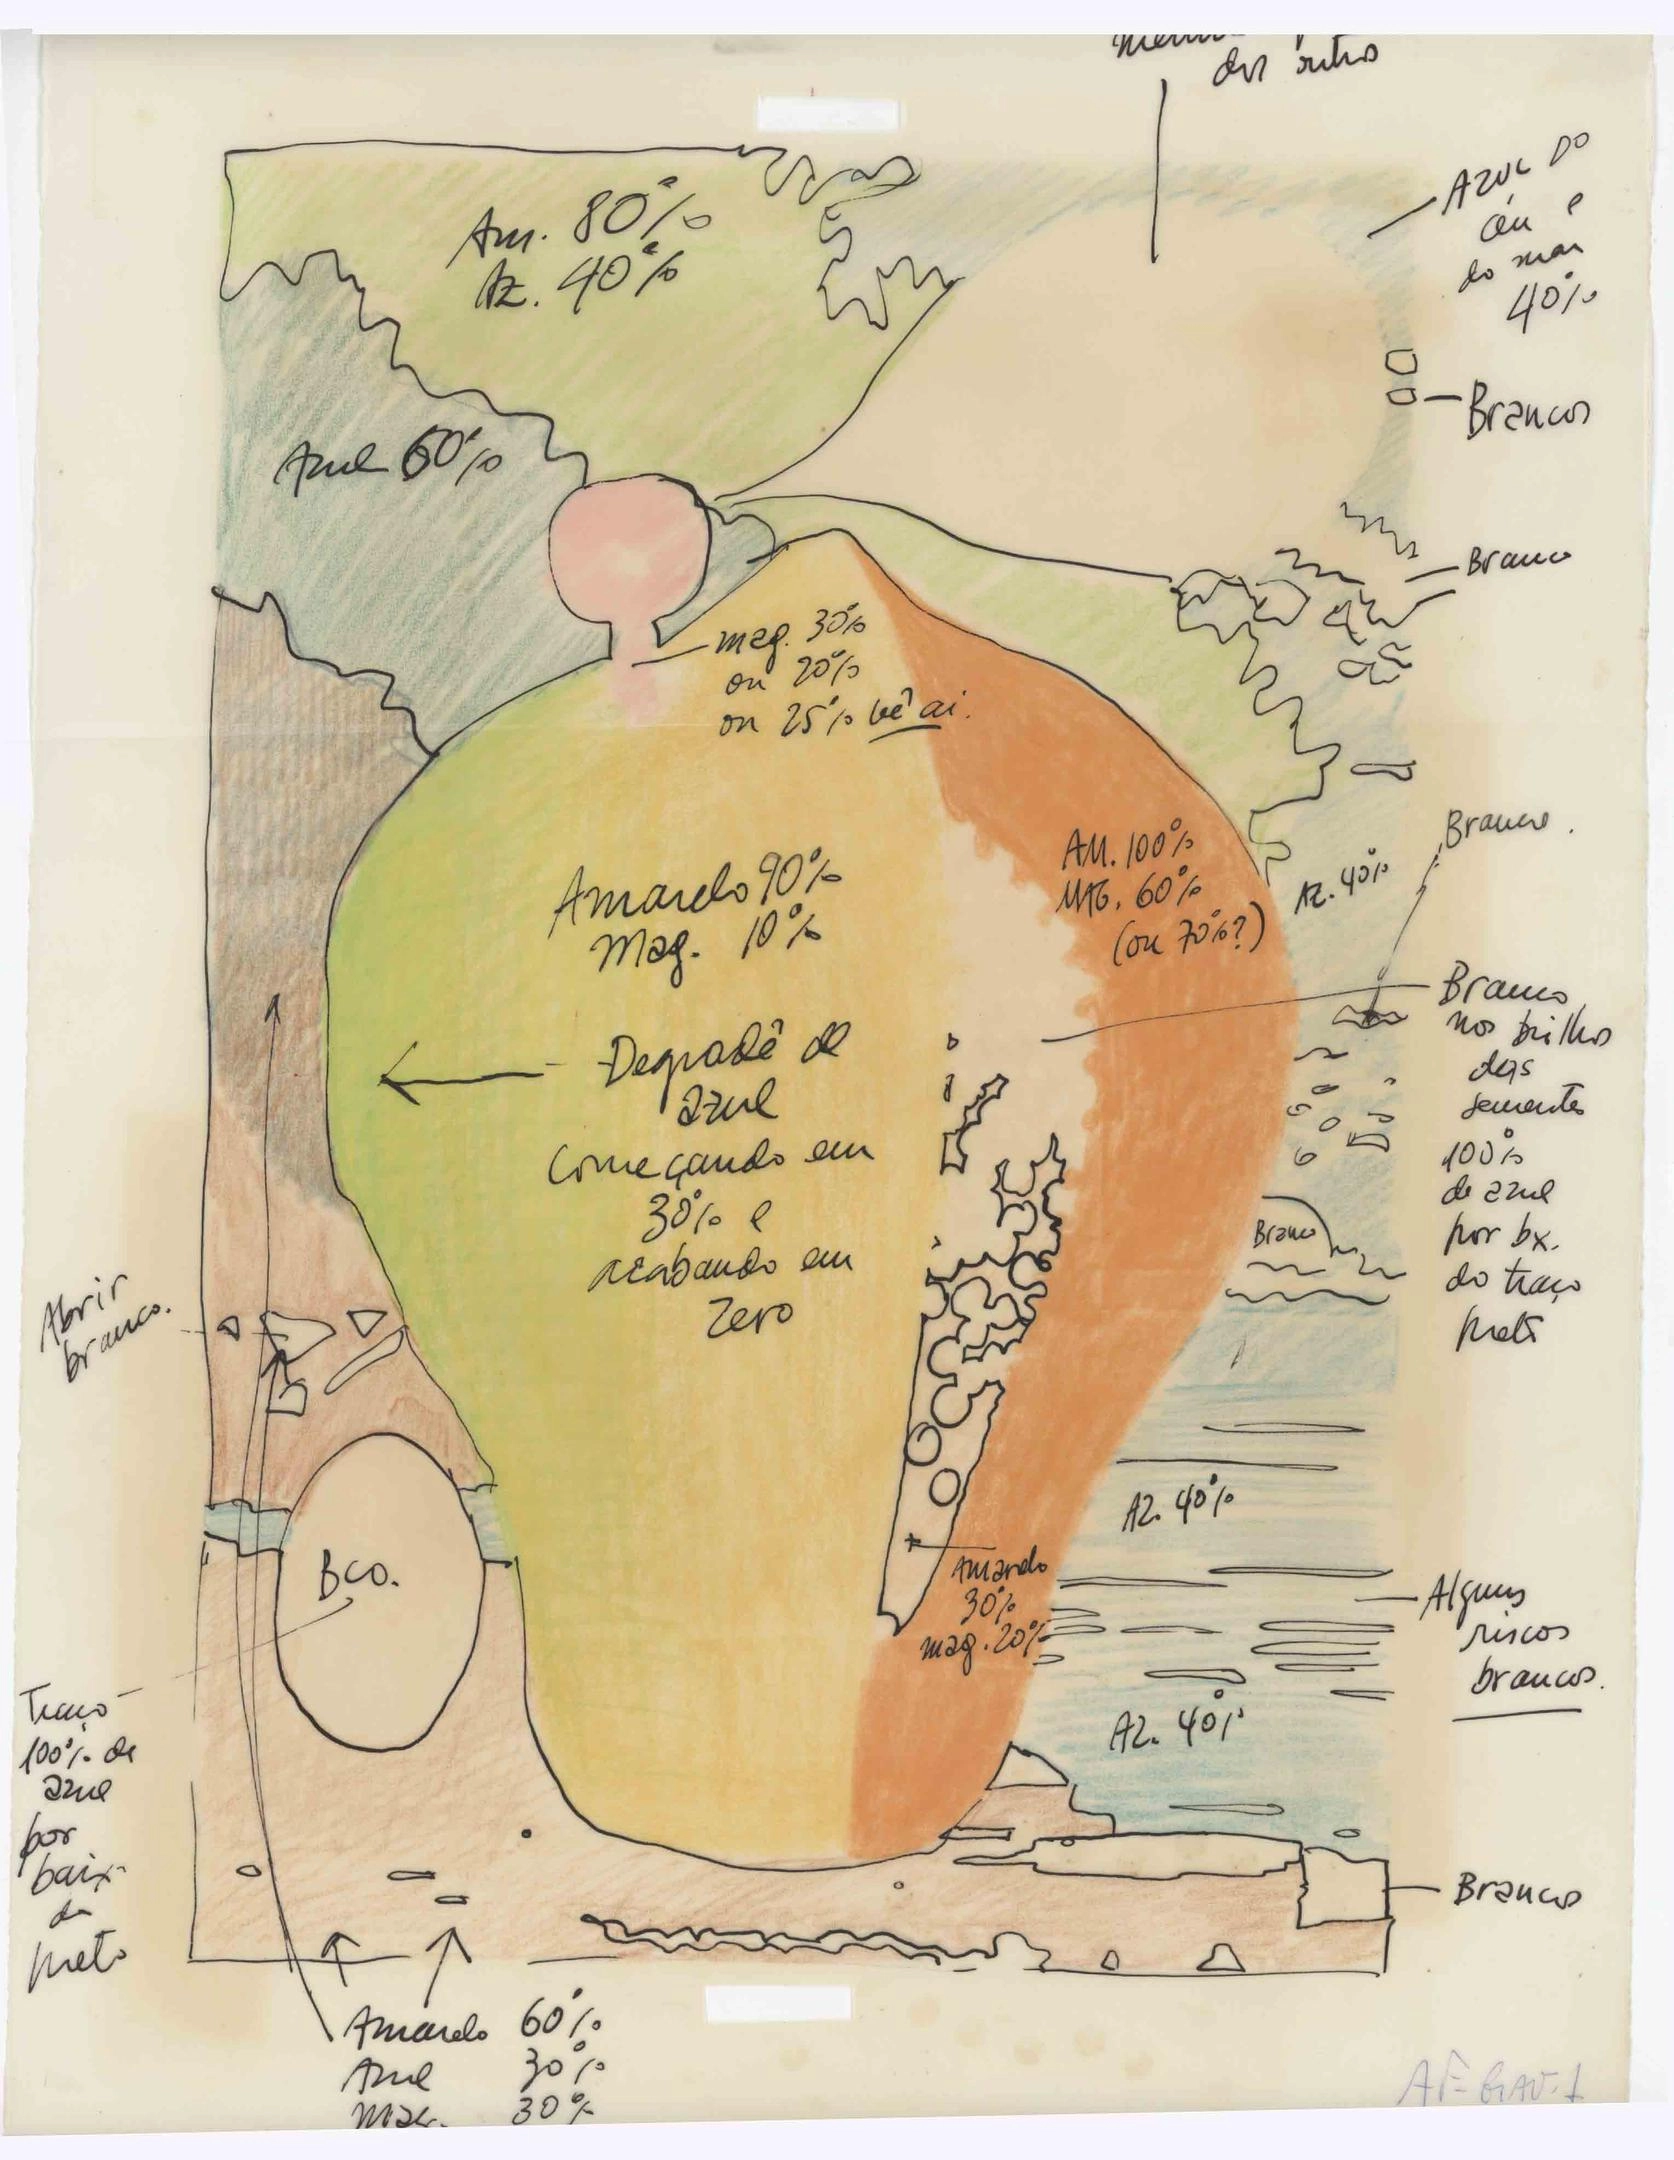 dos outros
AZUL DO
céu e
do mar
40%
Am. 80%
Az. 40%
Brancos
Azul 60%
Branco
mag. 30%
ou 20%
ou 25% vê aí.
Branco.
AM. 100%
MAG. 60%
(ou 70%?)
Az. 40%
Amarelo 90%
Mag. 10%
Branco
nos brilhos
das
sementes
100%
de azul
por bx.
do traço
preto
Degradê de
azul
começando em
30% e
acabando em
zero
Branco
Abrir
branco.
AZ. 40%
Bco.
Amarelo
30%
mag. 20%
Alguns
riscos
brancos.
Traço
100% de
azul
por
baix
do
preto
AZ. 40%
Brancos
Amarelo 60%
Azul 30%
Mag. 30%